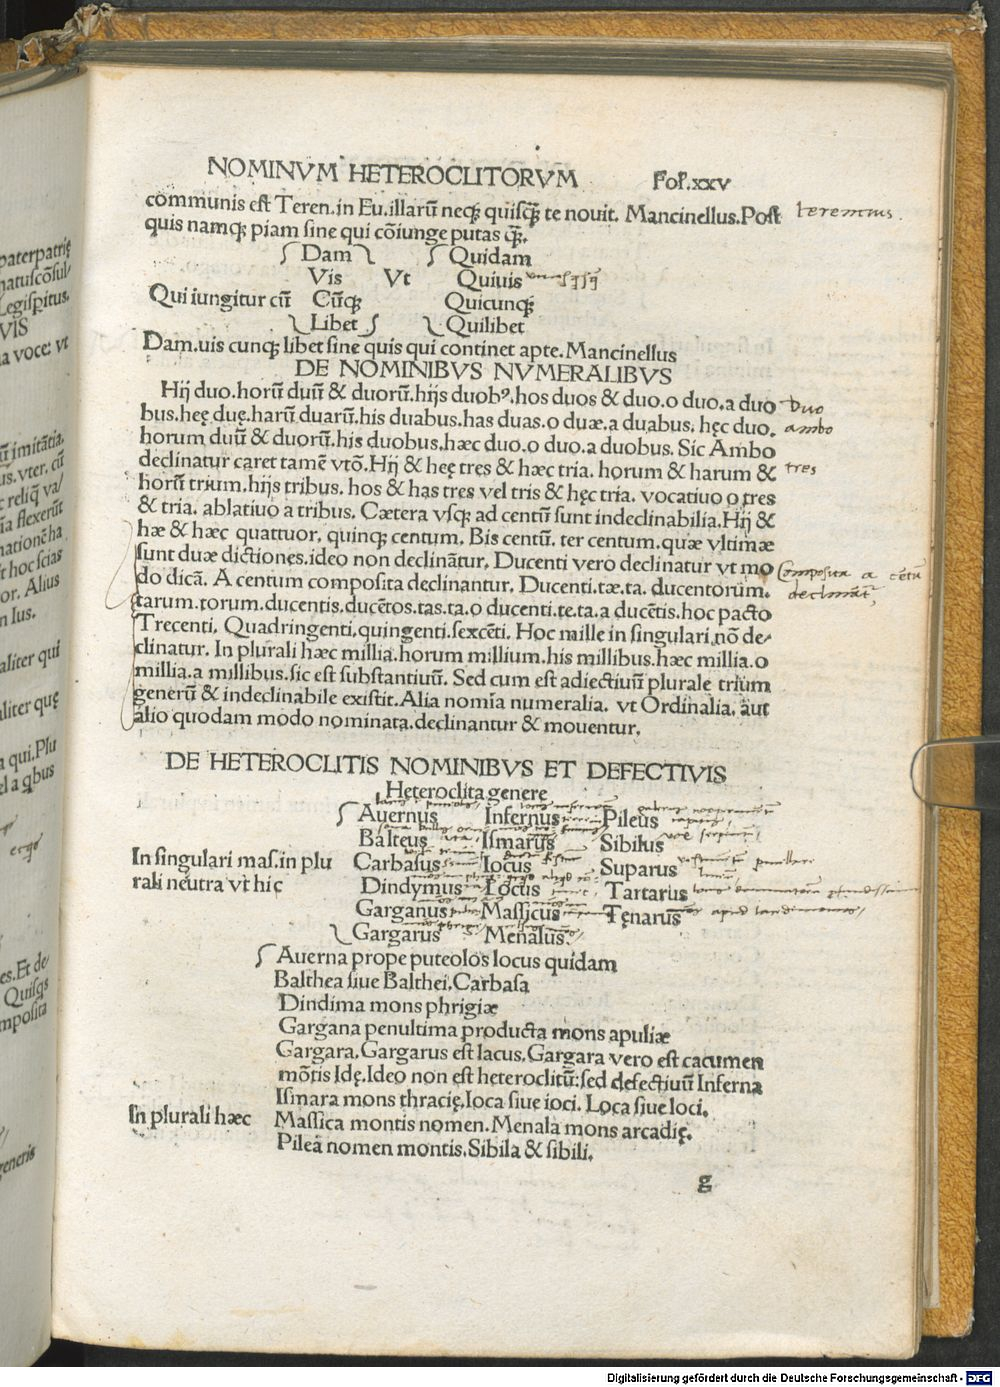 NOMINVM HETEROCLITORVM Fol.xxv
communis est Teren.in Eu.illarū neq; quisq̃; te nouit. Mancinellus.Post
terentius.
quis namq; piam sine qui cōiunge putas q̃;.
Dam Quidam
Vis Vt Quiuis
Qui iungitur cū Cūq; Quicunq;
Libet Quilibet
Dam.uis cunq; libet sine quis qui continet apte.Mancinellus
DE NOMINIBVS NVMERALIBVS
Hij duo.horū duū & duorū.hijs duobꝰ.hos duos & duo.o duo.a duo
Duo
bus.heę duę.harū duarū.his duabus.has duas.o duæ.a duabus. hęc duo.
ambo
horum duū & duorū.his duobus.hæc duo.o duo.a duobus. Sic Ambo
declinatur caret tamē vtō.Hij & heę tres & hæc tria. horum & harum &
tres
horū trium.hijs tribus. hos & has tres vel tris & hęc tria. vocatiuo o tres
& tria. ablatiuo a tribus. Cætera vsq; ad centū sunt indeclinabilia.Hij &
hæ & hæc quattuor. quinq; centum. Bis centū. ter centum.quæ vltimæ
sunt duæ dictiones.ideo non declinātur. Ducenti vero declinatur vt mo
Composita a cētū
do dicā. A centum composita declinantur. Ducenti.tæ.ta. ducentorum.
declinātᷣ
tarum.torum.ducentis.ducētos.tas.ta.o ducenti.te.ta.a ducētis.hoc pacto
Trecenti. Quadringenti.quingenti.sexcēti. Hoc mille in singulari nō de-
clinatur. In plurali hæc millia.horum millium.his millibus.hæc millia.o
millia.a millibus.sic est substantiuū. Sed cum est adiectiuū plurale trium
generū & indeclinabile existit.Alia nomīa numeralia. vt Ordinalia. aut
alio quodam modo nominata.declinantur & mouentur.
DE HETEROCLITIS NOMINIBVS ET DEFECTIVIS
Heteroclita genere
Auernus Infernus Pileus
Balteus Ismarus Sibilus
In singulari mas.in plu Carbasus Iocus Suparus
rali neutra vt hic Dindymus Locus Tartarus
Garganus Massicus Tęnarus
Gargarus Menalus
Auerna prope puteolos locus quidam
Balthea siue Balthei.Carbasa
Dindima mons phrigiæ
Gargana penultima producta mons apuliæ
Gargara.Gargarus est lacus.Gargara vero est cacumen
mōtis Idę.Ideo non est heteroclitū:sed defectiuū Inferna
Ismara mons thracię.Ioca siue ioci. Loca siue loci.
In plurali hæc Massica montis nomen.Menala mons arcadię.
Pilea nomen montis.Sibila & sibili.
g
paterpatrię
natuscōsul-
Legispitus.
VIS
a voce: vt
ū imitātia.
us.vter. cū
reliq̄ va/
ia flexerūt
t hoc scias
or. Alius
n Ius.
aliter qui
aliter quę
a qui.Plu
el a qbus
ergo
es.Et de-
Quisqs
mposita
generis
Digitalisierung gefördert durch die Deutsche Forschungsgemeinschaft - DFG